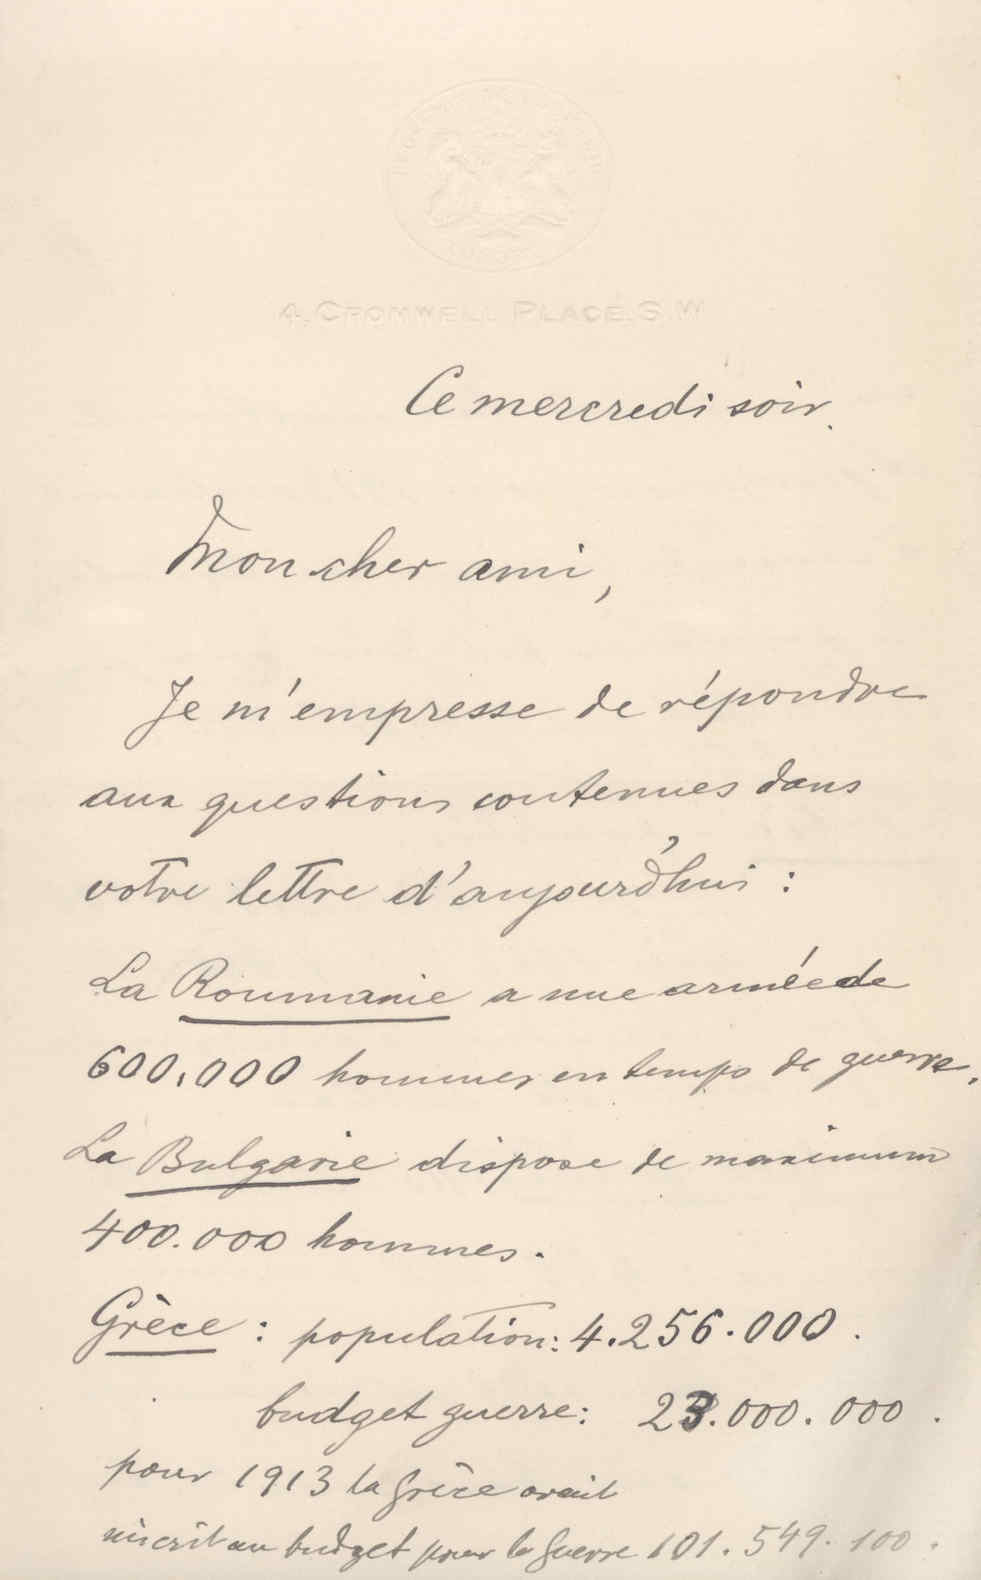 4. CROMWELL PLACE. S.W
Ce mercredi soir.
Mon cher ami,
Je m'empresse de répondre
aux questions contenues dans
votre lettre d'aujourd'hui :
La Roumanie a une armée de
600.000 hommes en temps de guerre.
La Bulgarie dispose de maximum
400.000 hommes.
Grèce : population: 4.256.000.
budget guerre: 23.000.000.
pour 1913 la Grèce avait
inscrit au budget pour la guerre 101.549.100.